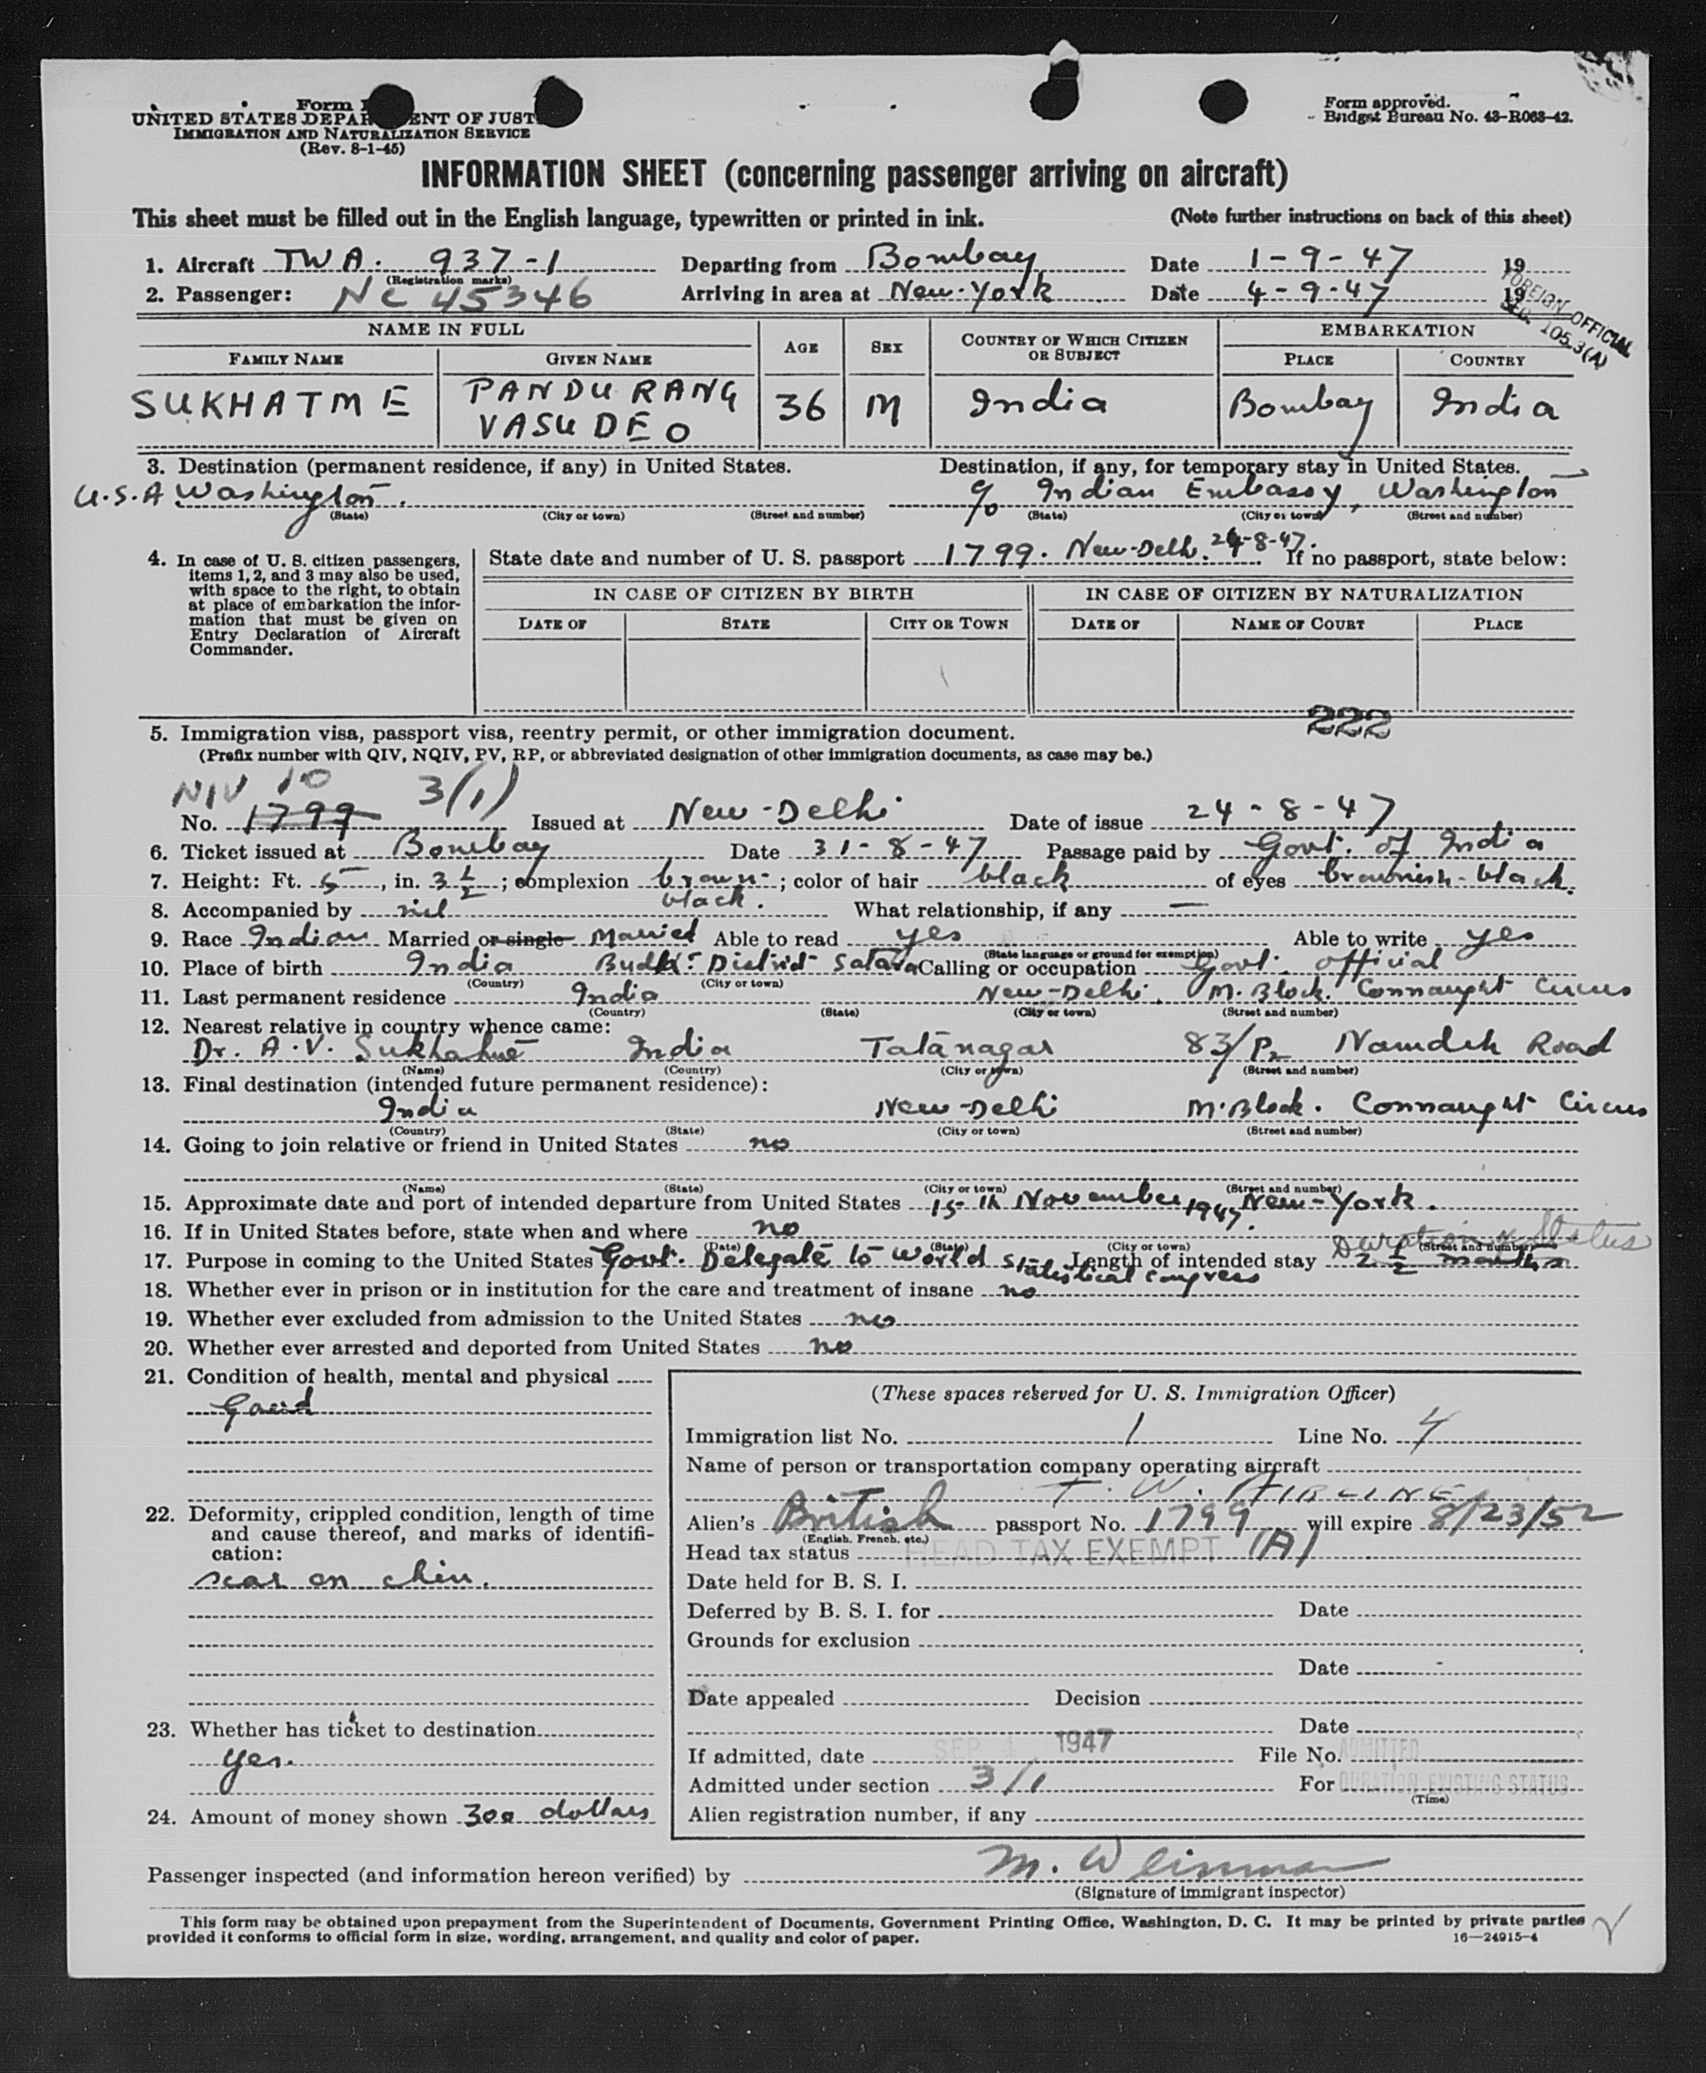 Form
UNITED STATES DEPARTMENT OF JUST
IMMIGRATION AND NATURALIZATION SERVICE
(Rev. 8-1-45)
Form approved.
Budget Bureau No. 43-R063-42.
INFORMATION SHEET (concerning passenger arriving on aircraft)
This sheet must be filled out in the English language, typewritten or printed in ink. (Note further instructions on back of this sheet)
1. Aircraft TWA. 937-1 Departing from Bombay Date 1-9-47 19
(Registration marks)
2. Passenger: NC 45346 Arriving in area at New-York Date 4-9-47 19
FOREIGN OFFICIAL
SEC. 105.3(A)
NAME IN FULL AGE SEX COUNTRY OF WHICH CITIZEN OR SUBJECT EMBARKATION
FAMILY NAME GIVEN NAME PLACE COUNTRY
SUKHATME PANDURANG VASUDEO 36 M India Bombay India
3. Destination (permanent residence, if any) in United States. Destination, if any, for temporary stay in United States.
U.S.A Washington. c/o Indian Embassy, Washington
(State) (City or town) (Street and number) (State) (City or town) (Street and number)
4. In case of U. S. citizen passengers,
items 1, 2, and 3 may also be used,
with space to the right, to obtain
at place of embarkation the infor-
mation that must be given on
Entry Declaration of Aircraft
Commander.
State date and number of U. S. passport 1799. New-Delhi. 24-8-47. If no passport, state below:
IN CASE OF CITIZEN BY BIRTH IN CASE OF CITIZEN BY NATURALIZATION
DATE OF STATE CITY OR TOWN DATE OF NAME OF COURT PLACE
222
5. Immigration visa, passport visa, reentry permit, or other immigration document.
(Prefix number with QIV, NQIV, PV, RP, or abbreviated designation of other immigration documents, as case may be.)
NIV 10 3(1)
No. 1799 Issued at New-Delhi Date of issue 24-8-47
6. Ticket issued at Bombay Date 31-8-47 Passage paid by Govt. of India
7. Height: Ft. 5, in. 3 1/2; complexion brown; color of hair black of eyes brownish-black.
black.
8. Accompanied by nil What relationship, if any —
9. Race Indian Married or single Married Able to read yes Able to write yes
(State language or ground for exemption)
10. Place of birth India Budh: District Satara Calling or occupation Govt. official
(Country) (City or town)
11. Last permanent residence India New-Delhi, M. Block. Connaught Circus
(Country) (State) (City or town) (Street and number)
12. Nearest relative in country whence came:
Dr. A.V. Sukhatme India Tatanagar 83/P2 Namdih Road
(Name) (Country) (City or town) (Street and number)
13. Final destination (intended future permanent residence):
India New-Delhi M. Block. Connaught Circus
(Country) (State) (City or town) (Street and number)
14. Going to join relative or friend in United States no
(Name) (State) (City or town) (Street and number)
15. Approximate date and port of intended departure from United States 15th November 1947. New-York.
16. If in United States before, state when and where no
(Date) (State) (City or town) (Street and number)
Duration of Status
17. Purpose in coming to the United States Govt. Delegate to World Statistical Congress Length of intended stay 2 1/2 months
18. Whether ever in prison or in institution for the care and treatment of insane no
19. Whether ever excluded from admission to the United States no
20. Whether ever arrested and deported from United States no
21. Condition of health, mental and physical
Good
22. Deformity, crippled condition, length of time
and cause thereof, and marks of identifi-
cation:
scar on chin.
23. Whether has ticket to destination
yes.
24. Amount of money shown 300 dollars
(These spaces reserved for U. S. Immigration Officer)
Immigration list No. 1 Line No. 4
Name of person or transportation company operating aircraft
T. W. AIRLINE
Alien's British passport No. 1799 will expire 8/23/52
(English, French, etc.)
Head tax status HEAD TAX EXEMPT (A)
Date held for B. S. I.
Deferred by B. S. I. for Date
Grounds for exclusion
Date
Date appealed Decision
Date
If admitted, date SEP 4 1947 File No. ADMITTED
Admitted under section 3/1 For DURATION EXISTING STATUS
(Time)
Alien registration number, if any
Passenger inspected (and information hereon verified) by M. Weinman
(Signature of immigrant inspector)
This form may be obtained upon prepayment from the Superintendent of Documents, Government Printing Office, Washington, D. C. It may be printed by private parties
provided it conforms to official form in size, wording, arrangement, and quality and color of paper. 16—24915-4